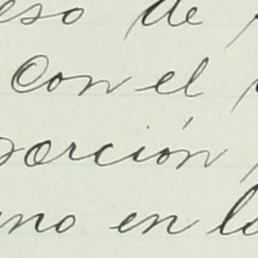 eso de
con el
porción
uno en la